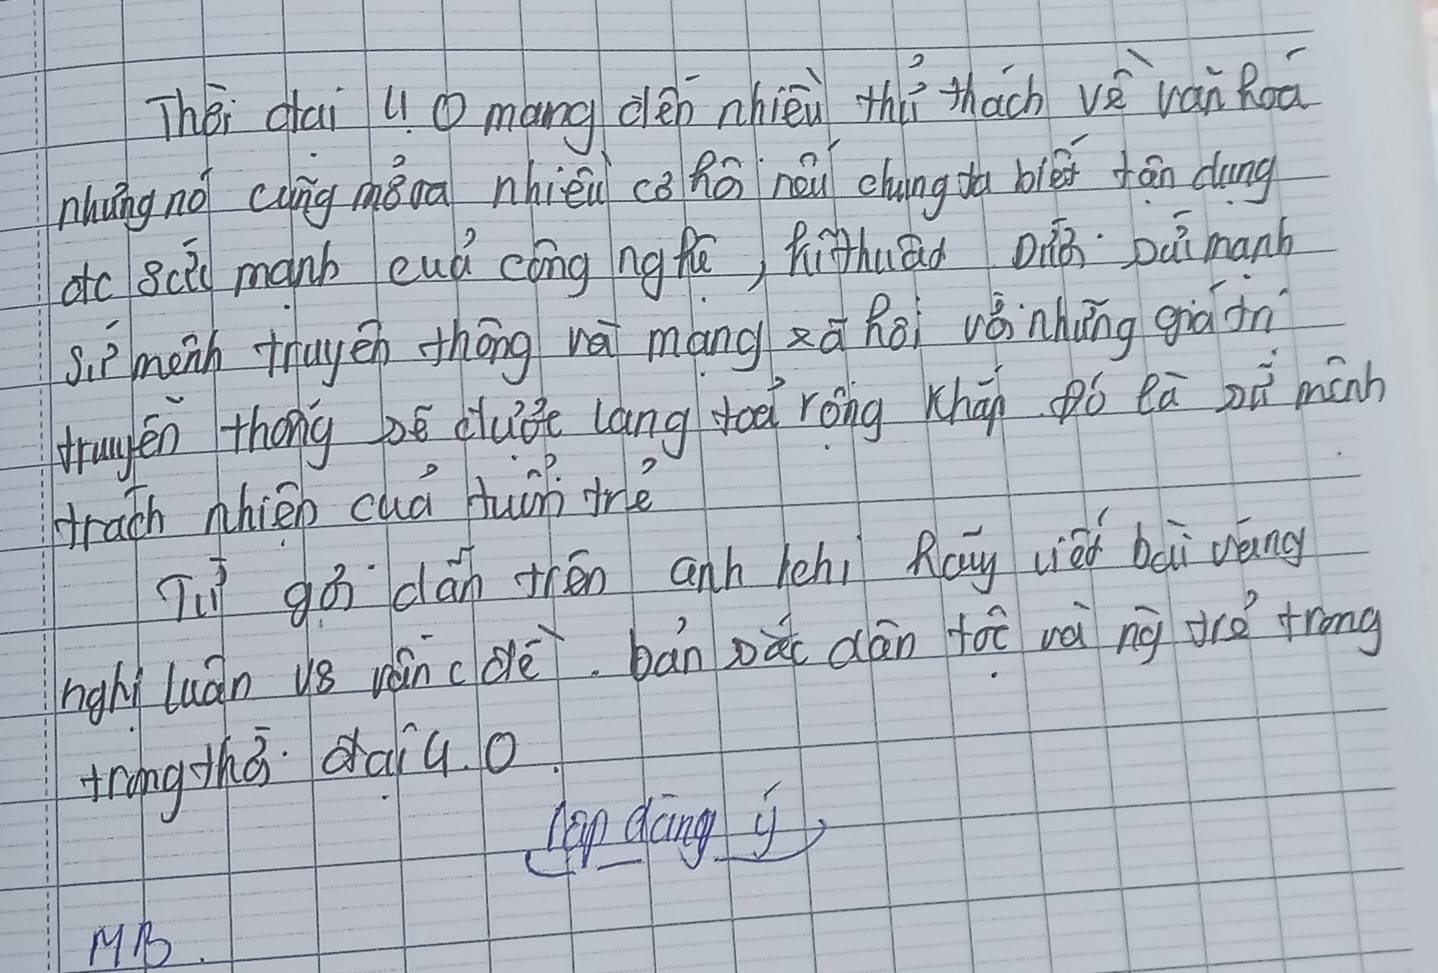 Thời đại 4.0 mang đến nhiều thử thách về văn hoá
nhưng nó cũng mở ra nhiều cơ hội nếu chúng ta biết tận dụng
đc sức mạnh cuả công nghệ, kĩ thuật với sức mạnh
sứ mệnh truyền thông và mạng xã hội với những giá trị
truyền thống sẽ được lang toả rộng khắp đó là sứ mệnh
trách nhiệm cuả tuổi trẻ
Từ gợi dẫn trên anh chị hãy viết bài văng
nghị luận về vấn đề. bản sắc dân tộc và ng trẻ trong
trong thời đại 4.0.
lập dàng ý
MB.